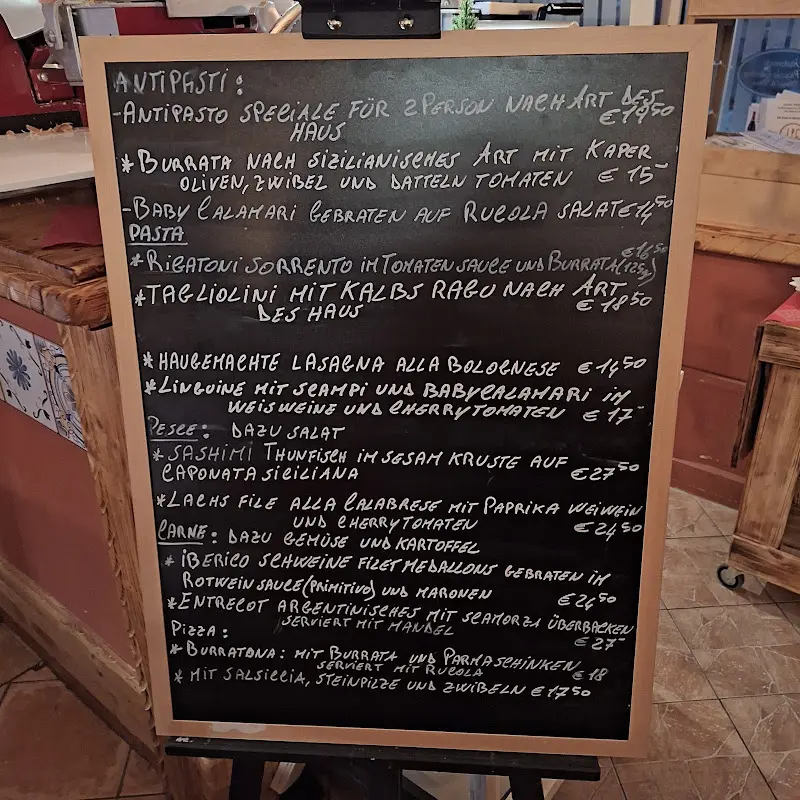 ANTIPASTI:
-ANTIPASTO SPECIALE FÜR 2 PERSON NACH ART DES
HAUS € 1950
* BURRATA NACH SIZILIANISCHES ART MIT KAPER
OLIVEN, ZWIBEL UND DATTELN TOMATEN € 15-
- BABY CALAMARI GEBRATEN AUF RUCOLA SALAT € 1450
PASTA
* RIGATONI SORRENTO IM TOMATENSAUCE UND BURRATA (125g) € 1650
* TAGLIOLINI MIT KALBS RAGU NACH ART
DES HAUS € 1850
* HAUGEMACHTE LASAGNA ALLA BOLOGNESE € 1450
* LINGUINE MIT SCAMPI UND BABYCALAMARI IM
WEISWEINE UND CHERRYTOMATEN € 17-
PESCE: DAZU SALAT
* SASHIMI THUNFISCH IM SESAM KRUSTE AUF
CAPONATA SICILIANA € 2750
* LACHS FILE ALLA CALABRESE MIT PAPRIKA WEIWEIN
UND CHERRYTOMATEN € 2450
CARNE: DAZU GEMÜSE UND KARTOFFEL
* IBERICO SCHWEINE FILET MEDALLONS GEBRATEN IM
ROTWEINSAUCE (PRIMITIVO) UND MARONEN € 2450
* ENTRECOT ARGENTINISCHES MIT SCAMORZA ÜBERBACKEN
SERVIERT MIT MANDEL € 27-
PIZZA:
* BURRATONA: MIT BURRATA UND PARMASCHINKEN
SERVIERT MIT RUCOLA € 18
* MIT SALSICCIA, STEINPILZE UND ZWIBELN € 1750